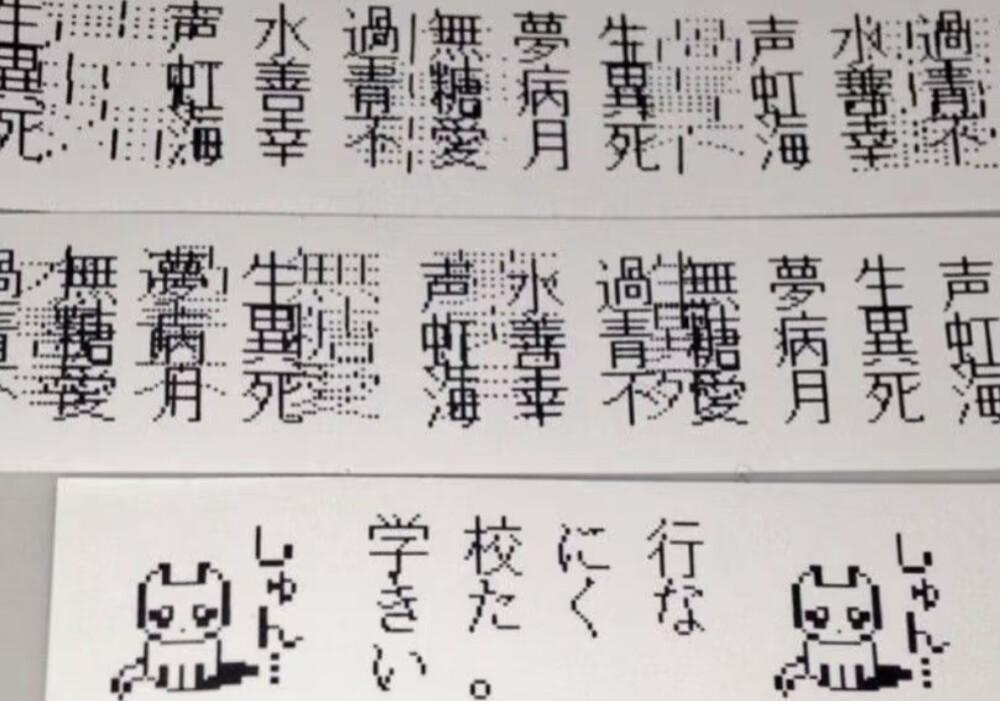 生声水過無夢生声水過
異虹善青糖病異虹善青
死海幸不愛月死海幸不
過無夢生声水過無夢生声
青糖病異虹善青糖病異虹
愛月死海幸不愛月死海
しゅん…
学校に行
きたくな
い。
しゅん…